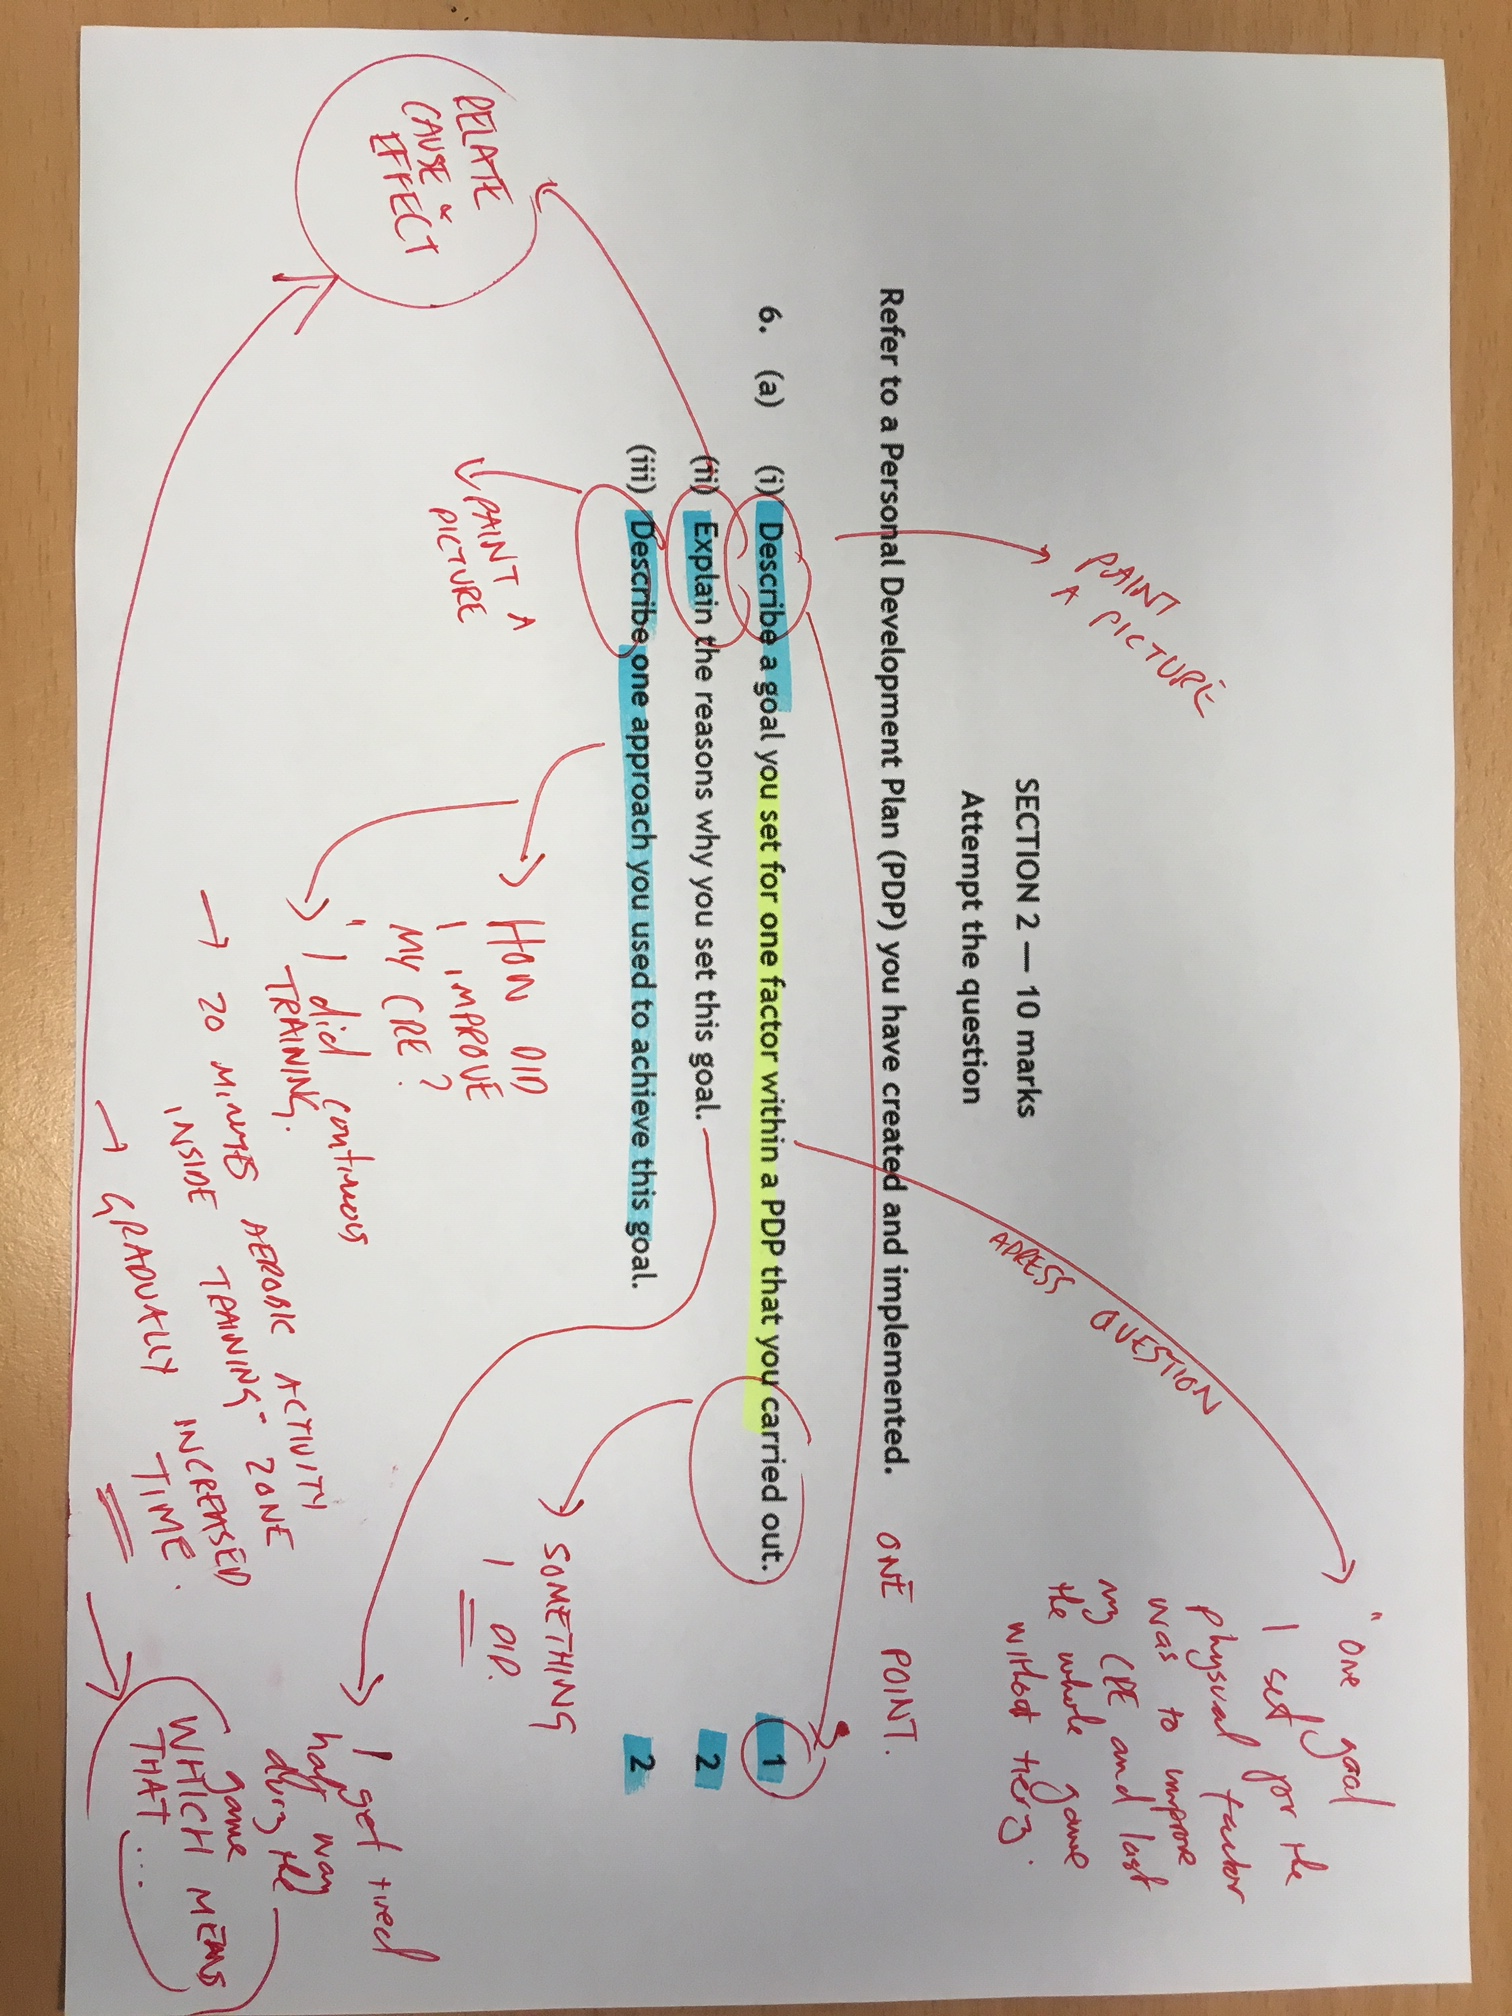 SECTION 2 — 10 marks
Attempt the question
Refer to a Personal Development Plan (PDP) you have created and implemented.
6. (a) (i) Describe a goal you set for one factor within a PDP that you carried out. 1
(ii) Explain the reasons why you set this goal. 2
(iii) Describe one approach you used to achieve this goal. 2
PAINT
A PICTURE
ADRESS QUESTION
"One goal
I set for the
physical factor
was to improve
my CRE and last
the whole game
without tiering.
ONE POINT.
SOMETHING
I DID.
RELATE
CAUSE &
EFFECT
PAINT A
PICTURE
HOW DID
I IMPROVE
MY CRE?
"I did continuous
TRAINING.
→ 20 MINUTES AEROBIC ACTIVITY
INSIDE TRAINING" ZONE
→ GRADUALLY INCREASED
TIME.
I get tired
half way
during the
game
WHICH MEANS
THAT ...